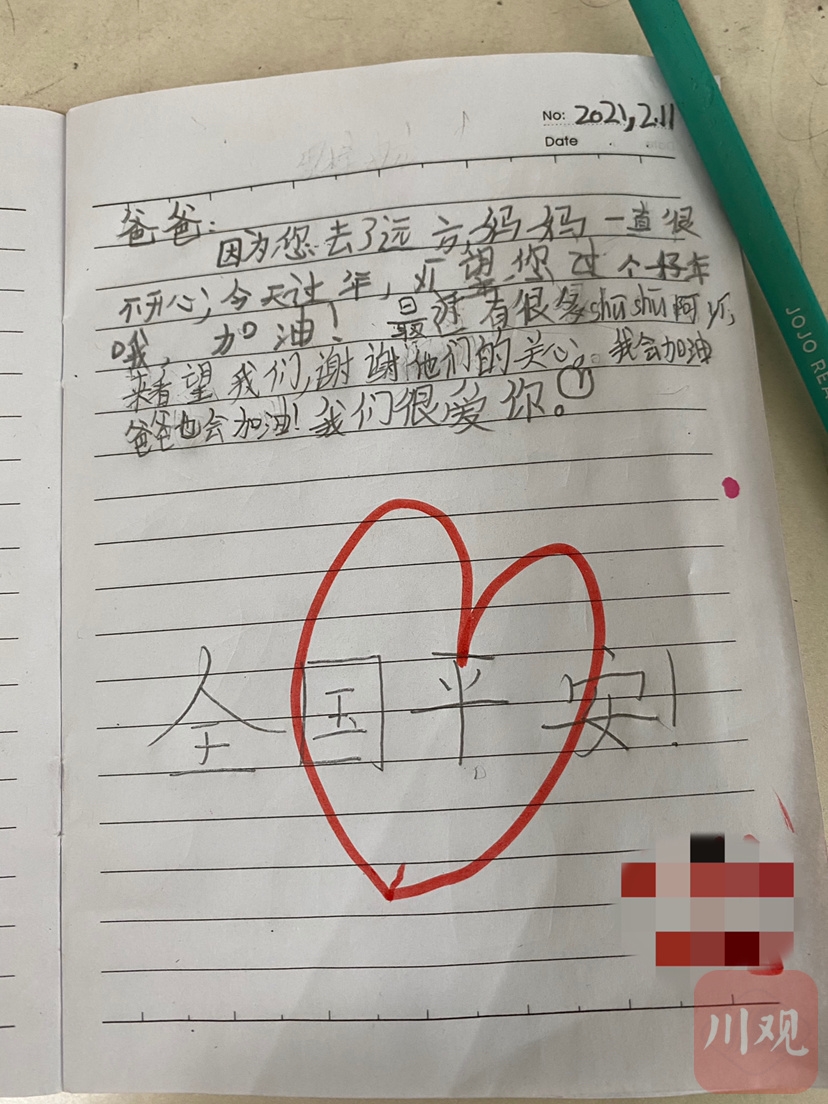 No: 2021,2.11
Date
爸爸:
因为您去了远方,妈妈一直很
不开心,今天过年,希望您过个好年
哦,加油!最近有很多shū shū阿姨,
来看望我们,谢谢他们的关心。我会加油
爸爸也会加油!我们很爱你。
全国平安!
JOJO REA
川观